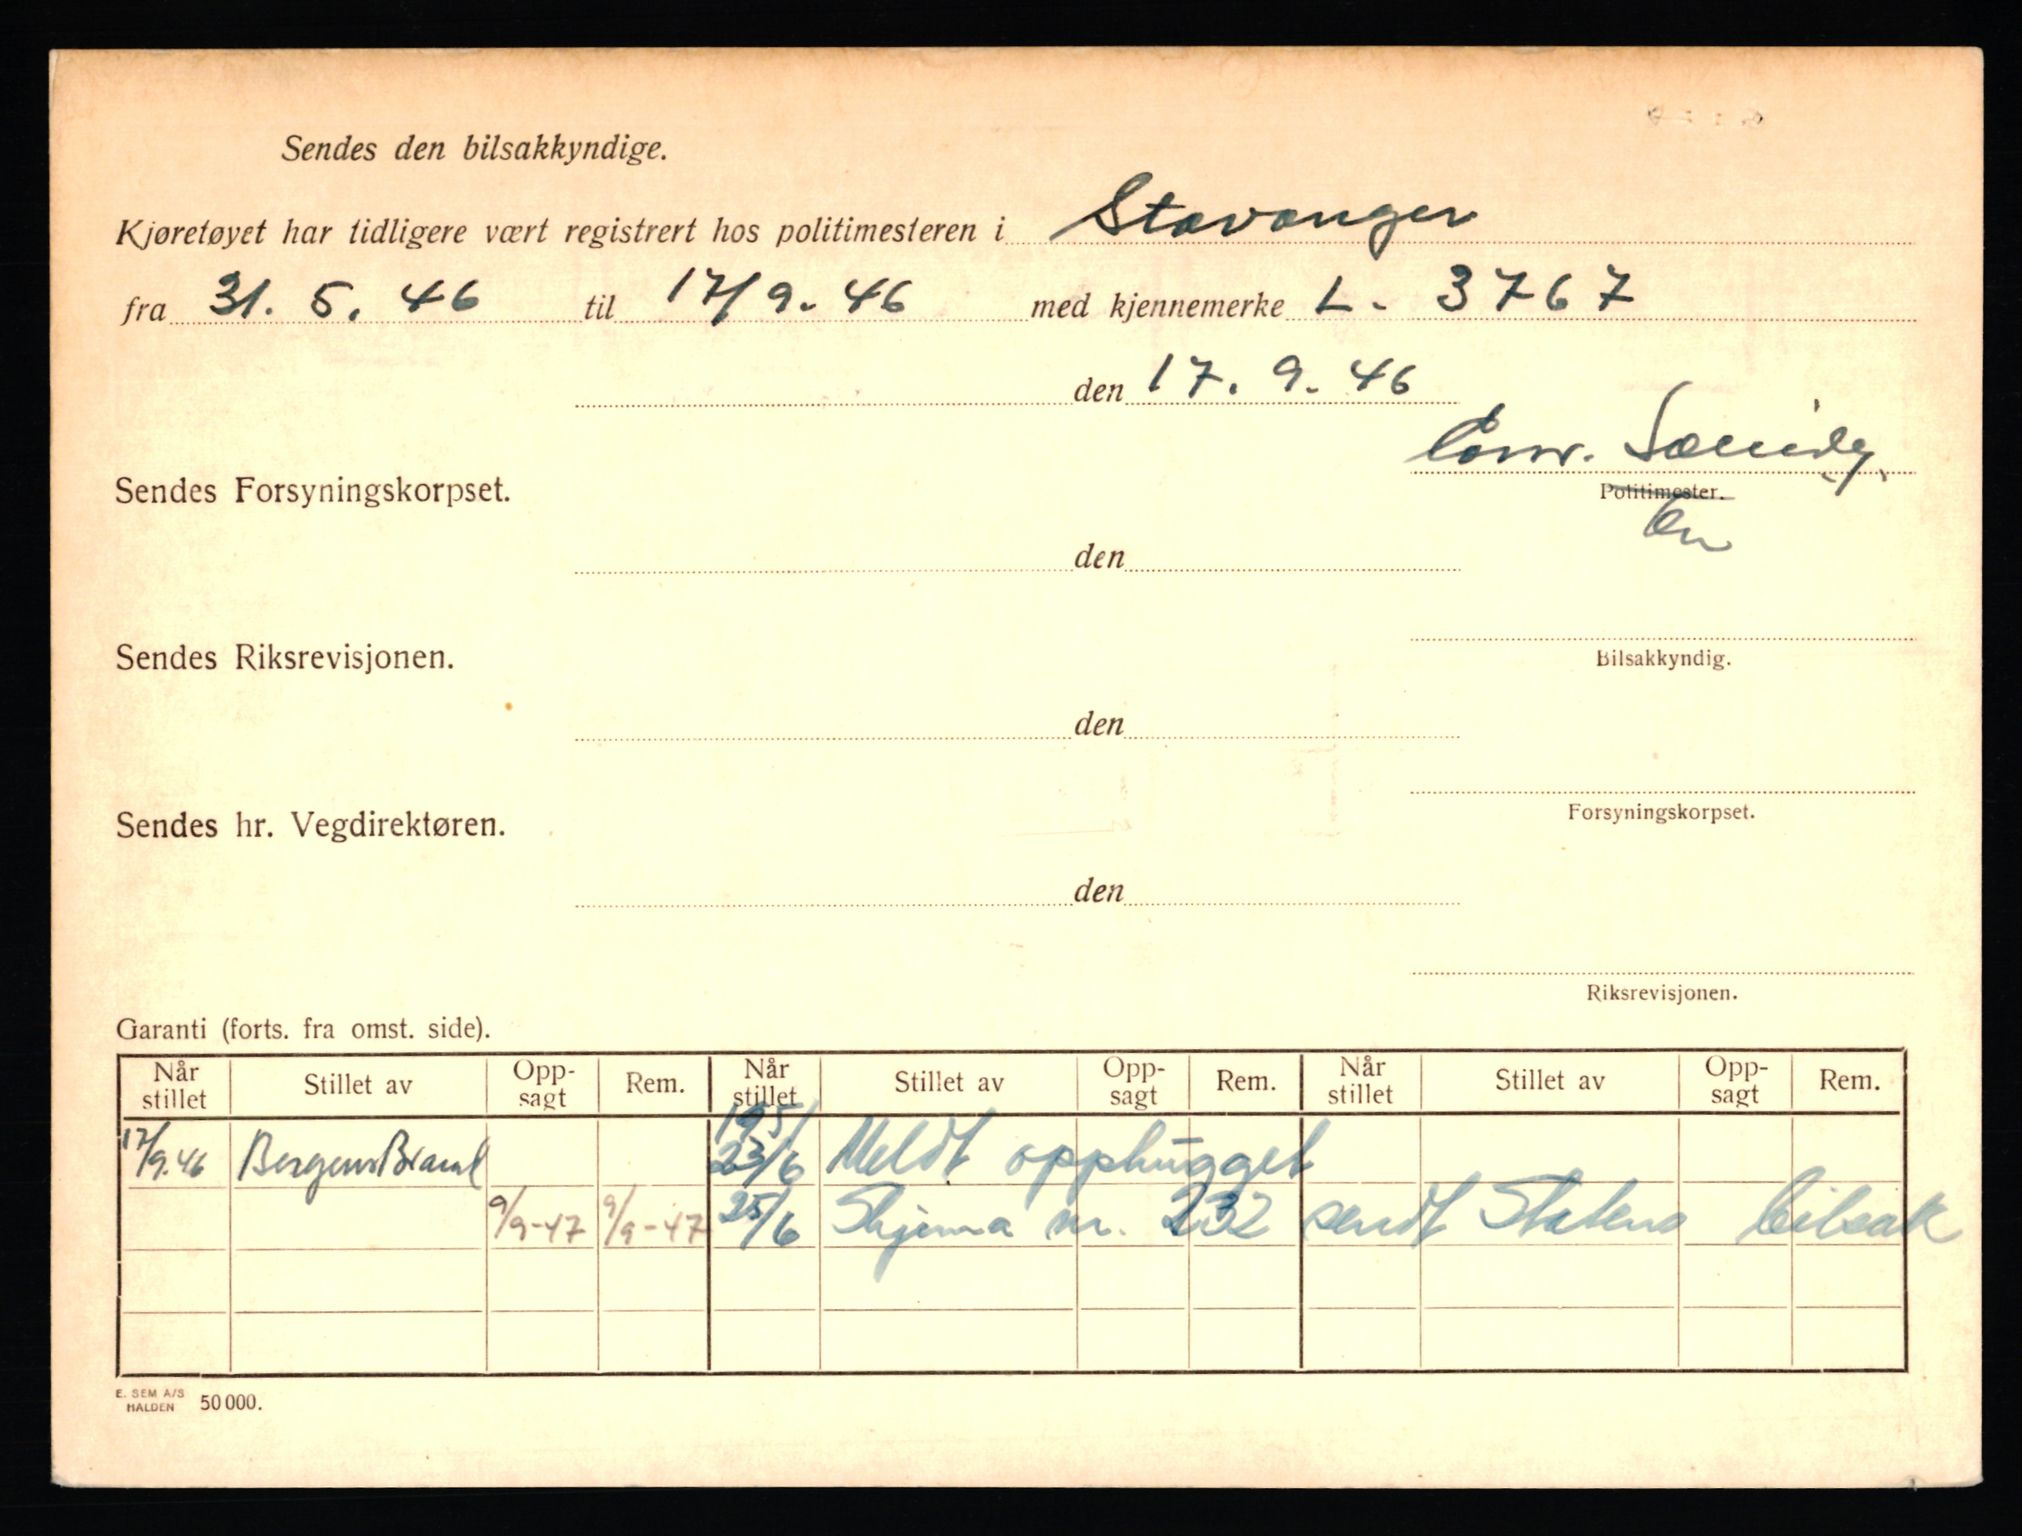 Sendes den bilsakkyndige.
Kjøretøyet har tidligere vært registrert hos politimesteren i Stavanger
fra 31. 5. 46 til 17/9-46 med kjennemerke L - 3767
den 17. 9. 46
Sendes Forsyningskorpset.
Politimester.
den
Sendes Riksrevisjonen.
Bilsakkyndig.
den
Sendes hr. Vegdirektøren.
Forsyningskorpset.
den
Riksrevisjonen.
Garanti (forts. fra omst. side).
Når stillet Stillet av Opp-sagt Rem. Når stillet Stillet av Opp-sagt Rem. Når stillet Stillet av Opp-sagt Rem.
1951
17/9.46 Bergens Brand 23/6 Meldt opphugget
9/9-47 9/9-47 25/6 Skjema nr. 232 sendt Statens bilsak
E. SEM A/S
HALDEN 50 000.